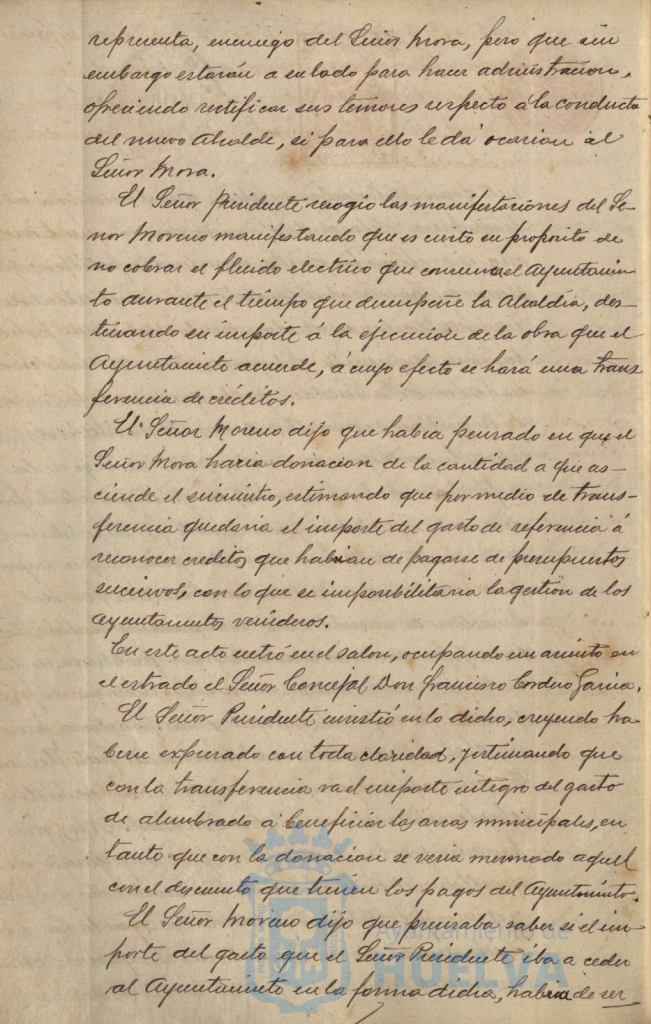 representa, enemigo del Señor Mora, pero que sin
embargo estarán a su lado para hacer administracion,
ofreciendo rectificar sus temores respecto á la conducta
del nuevo Alcalde, si para ello le dá ocasion el
Señor Mora.
El Señor Presidente recogio las manifestaciones del Se-
ñor Moreno manifestando que es cierto su proposito de
no cobrar el fluido electrico que consuma el Ayuntamien-
to durante el tiempo que desempeñe la Alcaldia, des-
tinando su importe á la ejecucion de la obra que el
Ayuntamiento acuerde, á cuyo efecto se hará una trans-
ferencia de créditos.
El Señor Moreno dijo que habia pensado en que el
Señor Mora haria donacion de la cantidad a que as-
ciende el suministro, estimando que por medio de trans-
ferencia quedaria el importe del gasto de referencia á
reconocer creditos que habrian de pagarse de presupuestos
sucesivos, con lo que se imposibilitaria la gestion de los
ayuntamientos venideros.
En este acto entró en el salon, ocupando un asiento en
el estrado el Señor Concejal Don Francisco Cordero Garcia.
El Señor Presidente insistió en lo dicho, creyendo ha-
berse expresado con toda claridad, y estimando que
con la transferencia va el importe integro del gasto
de alumbrado a beneficiar las arcas municipales, en
tanto que con la donacion se veria mermado aquel
con el descuento que tienen los pagos del Ayuntamiento.
El Señor Moreno dijo que precisaba saber si el im-
porte del gasto que el Señor Presidente iba a ceder
al Ayuntamiento en la forma dicha, habia de ser
Ayuntamiento de
HUELVA